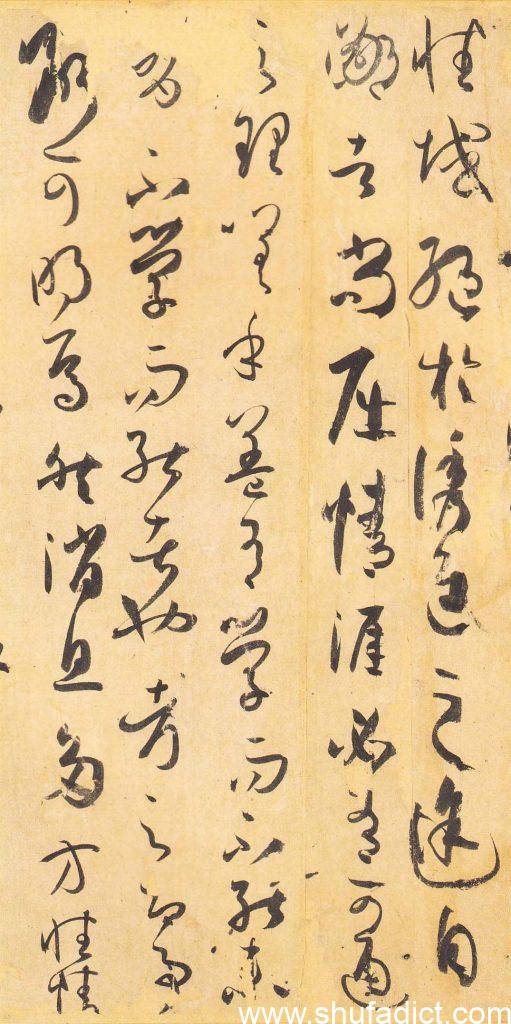 性域絕於誘進之途自
鄙者尚屈情涯必有可通
之理嗟乎蓋有學而不能未
有不學而能者也考之即事
斷可明焉然消息多方性情
www.shufadict.com